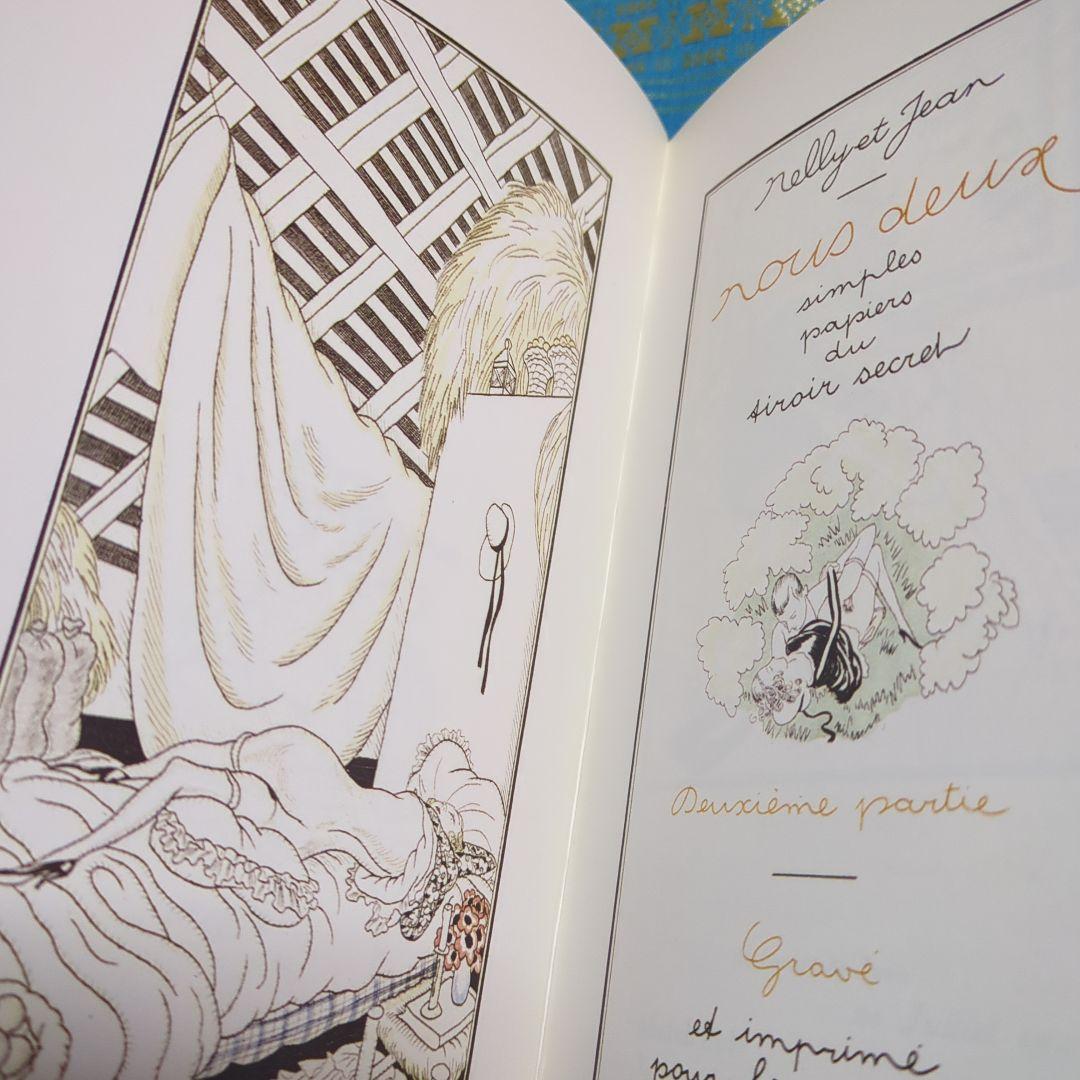 nelly et Jean
nous deux
simples
papiers
du
tiroir secret
Deuxième partie
Gravé
et imprimé
pour